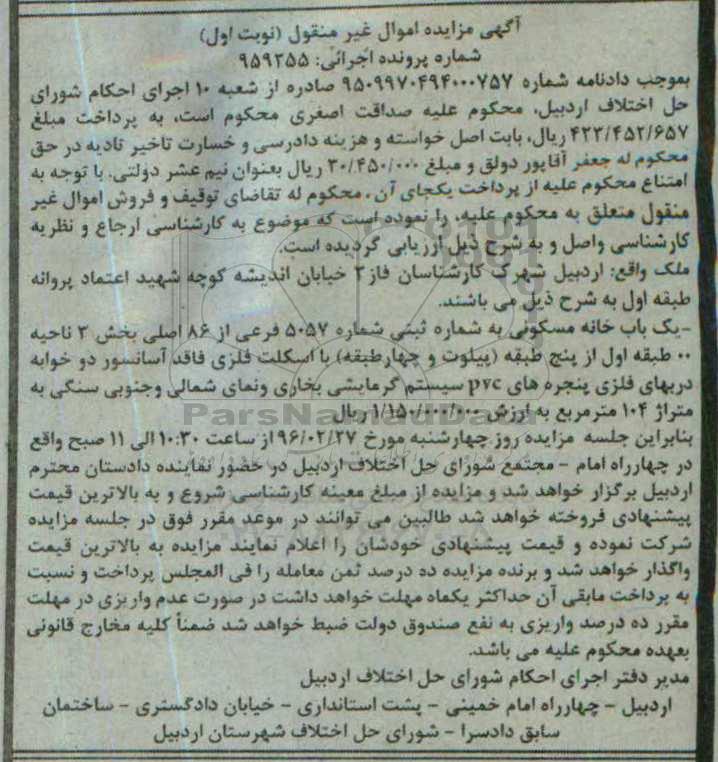 آگهی مزایده اموال غیر منقول (نوبت اول)
شماره پرونده اجرائی: ۹۵۹۲۵۵
بموجب دادنامه شماره ۹۵۰۹۹۷۰۴۹۴۰۰۰۷۵۷ صادره از شعبه ۱۰ اجرای احکام شورای
حل اختلاف اردبیل، محکوم علیه صداقت اصغری محکوم است، به پرداخت مبلغ
۴۲۳/۴۵۲/۶۵۷ ریال، بابت اصل خواسته و هزینه دادرسی و خسارت تاخیر تادیه در حق
محکوم له جعفر آقاپور دولق و مبلغ ۳۰/۴۵۰/۰۰۰ ریال بعنوان نیم عشر دولتی. با توجه به
امتناع محکوم علیه از پرداخت یکجای آن، محکوم له تقاضای توقیف و فروش اموال غیر
منقول متعلق به محکوم علیه، را نموده است که موضوع به کارشناسی ارجاع و نظریه
کارشناسی واصل و به شرح ذیل ارزیابی گردیده است.
ملک واقع: اردبیل شهرک کارشناسان فاز۲ خیابان اندیشه کوچه شهید اعتماد پروانه
طبقه اول به شرح ذیل می باشند.
-یک باب خانه مسکونی به شماره ثبتی شماره ۵۰۵۷ فرعی از ۸۶ اصلی بخش ۳ ناحیه
۰۰ طبقه اول از پنج طبقه (پیلوت و چهارطبقه) با اسکلت فلزی فاقد آسانسور دو خوابه
دربهای فلزی پنجره های pvc سیستم گرمایشی بخاری ونمای شمالی وجنوبی سنگی به
متراژ ۱۰۴ مترمربع به ارزش ۱/۱۵۰/۰۰۰/۰۰۰ ریال
ParsNamadData
بنابراین جلسه مزایده روز چهارشنبه مورخ ۹۶/۰۲/۲۷ از ساعت ۱۰:۳۰ الی ۱۱ صبح واقع
در چهارراه امام - مجتمع شورای حل اختلاف اردبیل در حضور نماینده دادستان محترم
اردبیل برگزار خواهد شد و مزایده از مبلغ معینه کارشناسی شروع و به بالاترین قیمت
پیشنهادی فروخته خواهد شد طالبین می توانند در موعد مقرر فوق در جلسه مزایده
شرکت نموده و قیمت پیشنهادی خودشان را اعلام نمایند مزایده به بالاترین قیمت
واگذار خواهد شد و برنده مزایده ده درصد ثمن معامله را فی المجلس پرداخت و نسبت
به پرداخت مابقی آن حداکثر یکماه مهلت خواهد داشت در صورت عدم واریزی در مهلت
مقرر ده درصد واریزی به نفع صندوق دولت ضبط خواهد شد ضمناً کلیه مخارج قانونی
بعهده محکوم علیه می باشد.
مدیر دفتر اجرای احکام شورای حل اختلاف اردبیل
اردبیل - چهارراه امام خمینی - پشت استانداری - خیابان دادگستری - ساختمان
سابق دادسرا - شورای حل اختلاف شهرستان اردبیل